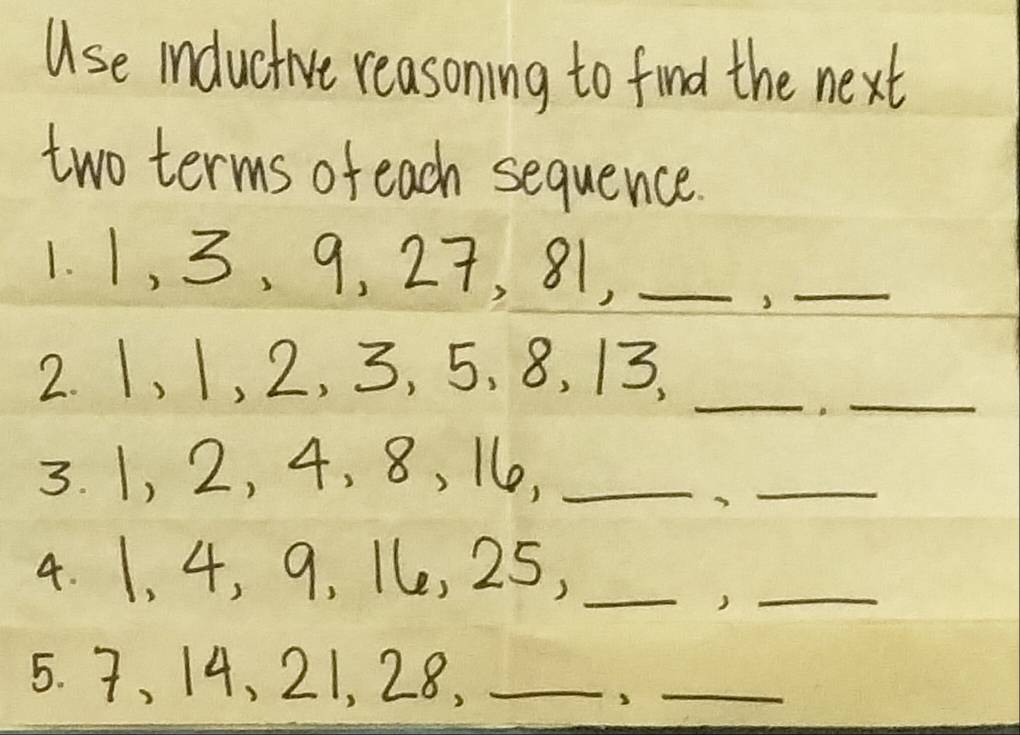 Use inductive reasoning to find the next
two terms of each sequence.
1. 1, 3, 9, 27, 81, ___, ___
2. 1, 1, 2, 3, 5, 8, 13, ___, ___
3. 1, 2, 4, 8, 16, ___, ___
4. 1, 4, 9, 16, 25, ___, ___
5. 7, 14, 21, 28, ___, ___